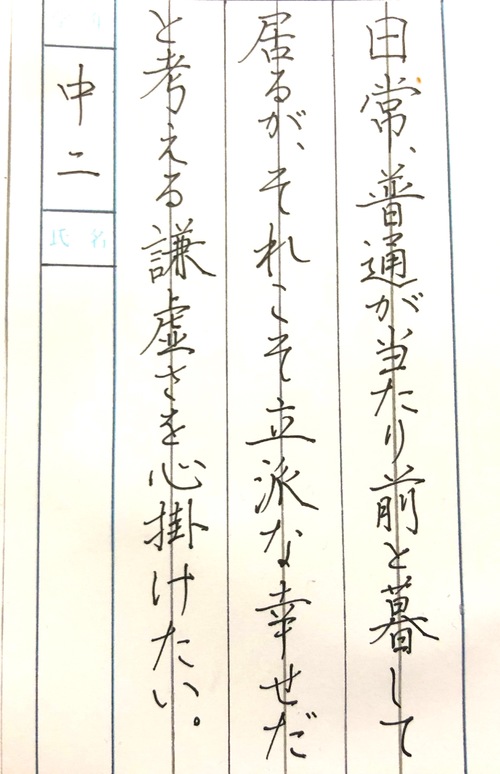 日常、普通が当たり前と暮して
居るが、それこそ立派な幸せだ
と考える謙虚さを心掛けたい。
中二
氏名